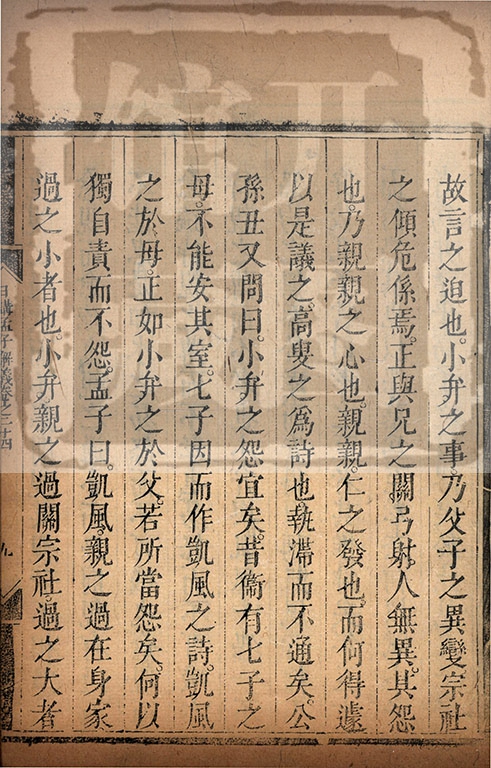 故言之迫也。小弁之事。乃父子之異變。宗社
之傾危係焉。正與兄之關弓射人無異。其怨
也。乃親親之心也。親親。仁之發也。而何得遽
以是議之。高叟之爲詩也。執滯而不通矣。公
孫丑又問曰。小弁之怨宜矣。昔衞有七子之
母。不能安其室。七子因而作凱風之詩。凱風
之於母。正如小弁之於父。若所當怨矣。何以
獨自責而不怨。孟子曰。凱風。親之過在身家
過之小者也。小弁親之過關宗社。過之大者
日講孟子解義卷之二十四
九